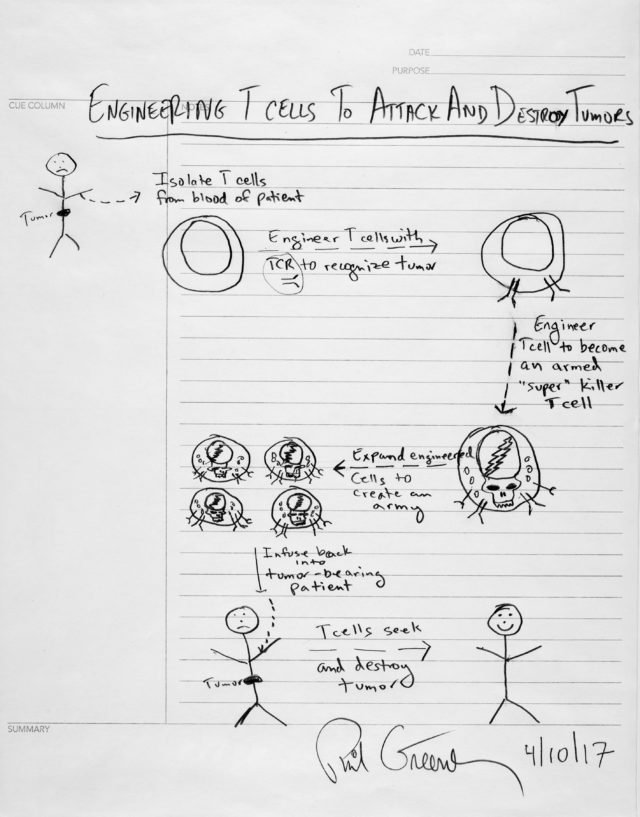 DATE
PURPOSE
CUE COLUMN
NOTES
ENGINEERING T CELLS TO ATTACK AND DESTROY TUMORS
Isolate T cells
from blood of patient
Tumor
Engineer T cells with
TCR to recognize tumor
Engineer
T cell to become
an armed
"super" killer
T cell
Expand engineered
Cells to
create an
army
Infuse back
into
tumor-bearing
patient
T cells seek
and destroy
tumor
Tumor
SUMMARY
Phil Greenberg
4/10/17